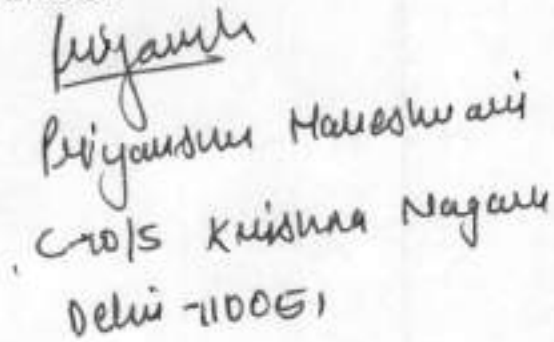 Priyanshu
Priyanshu Maheshwari
C-10/5 Krishna Nagar
Delhi - 110051